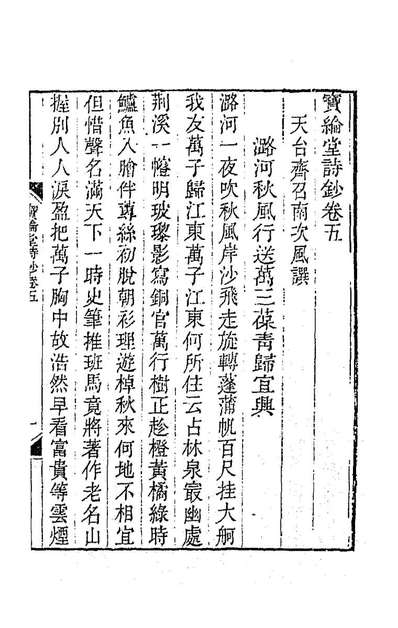 寶綸堂詩鈔卷五
天台齊召南次風譔
潞河秋風行送萬三葆青歸宜興
潞河一夜吹秋風岸沙飛走旋轉蓬蒲帆百尺挂大舸
我友萬子歸江東萬子江東何所住云占林泉最幽處
荆溪一幢明玻瓈影寫銅官萬行樹正趁橙黃橘綠時
鱸魚入膾伴蓴絲初脫朝衫理遊棹秋來何地不相宜
但惜聲名滿天下一時史筆推班馬竟將著作老名山
握別人人淚盈把萬子胸中故浩然早看富貴等雲煙
寶綸堂詩鈔卷五
一